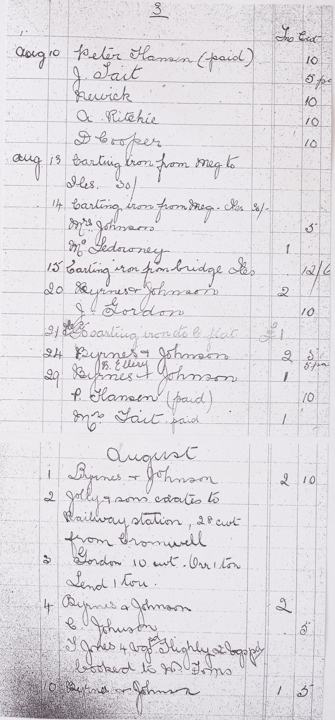 3
Aug 10 Peter Hansen (paid) 10
J. Tait 5 pd
Newick 10
A. Ritchie 10
D Cooper 10
Aug 13 Carting iron from Meg to
Iles. 30/
14 Carting iron from Meg. Iles 5/-
Mrs Johnson 5
Mc 1
15 Carting iron from bridge Iles 12/6
20 Byrnes & Johnson 2
J. Gordon 10
21 carting iron to flat £1
24 Byrnes & Johnson 2 5
B. Ellery 5 pd
29 Byrnes & Johnson 1
P. Hansen (paid) 10
Mrs Tait paid 1
August
1 Byrnes & Johnson 2 10
2 Jolly & sons crates to
Railway station, 28 cwt
from Cromwell
3 Gordon 10 cwt. Orr 1 ton
Lend 1 ton.
4 Byrnes & Johnson 2
C. Johnson 5
T Jones 4 bgs Highly 2 bags
booked to
10 Byrnes & Johnson 1 5